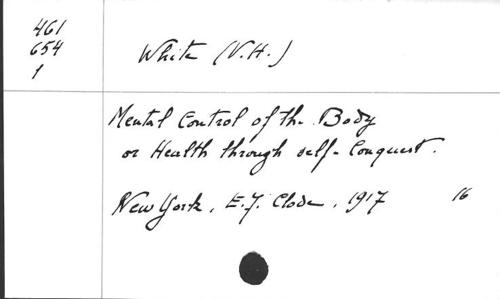 461
654
1
White (V.H.)
Mental Control of the Body
or Health through self-Conquest.
New York, E.J. Clode, 1917 16